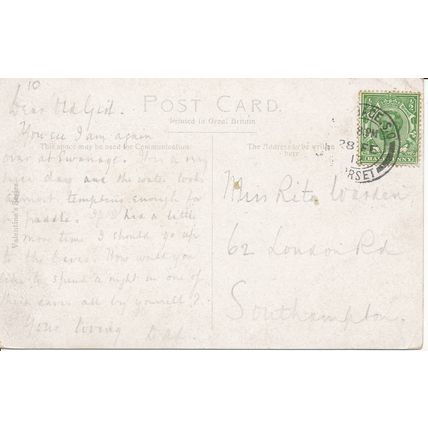 10
Dear Old Girl.
POST CARD.
Printed in Great Britain
You see I am again
This space may be used for Communication
The Address to be written here
over at Swanage. It is a very
nice day and the water looks
most tempting enough for
a paddle. If I had a little
more time I should go up
to the Caves. How would you
like to spend a night in one of
these caves all by yourself?
Your loving
Miss Rita Warden,
62 London Rd
Southampton.
Valentine's Series
8 PM
28 FE
12
DORSET
HALFPENNY